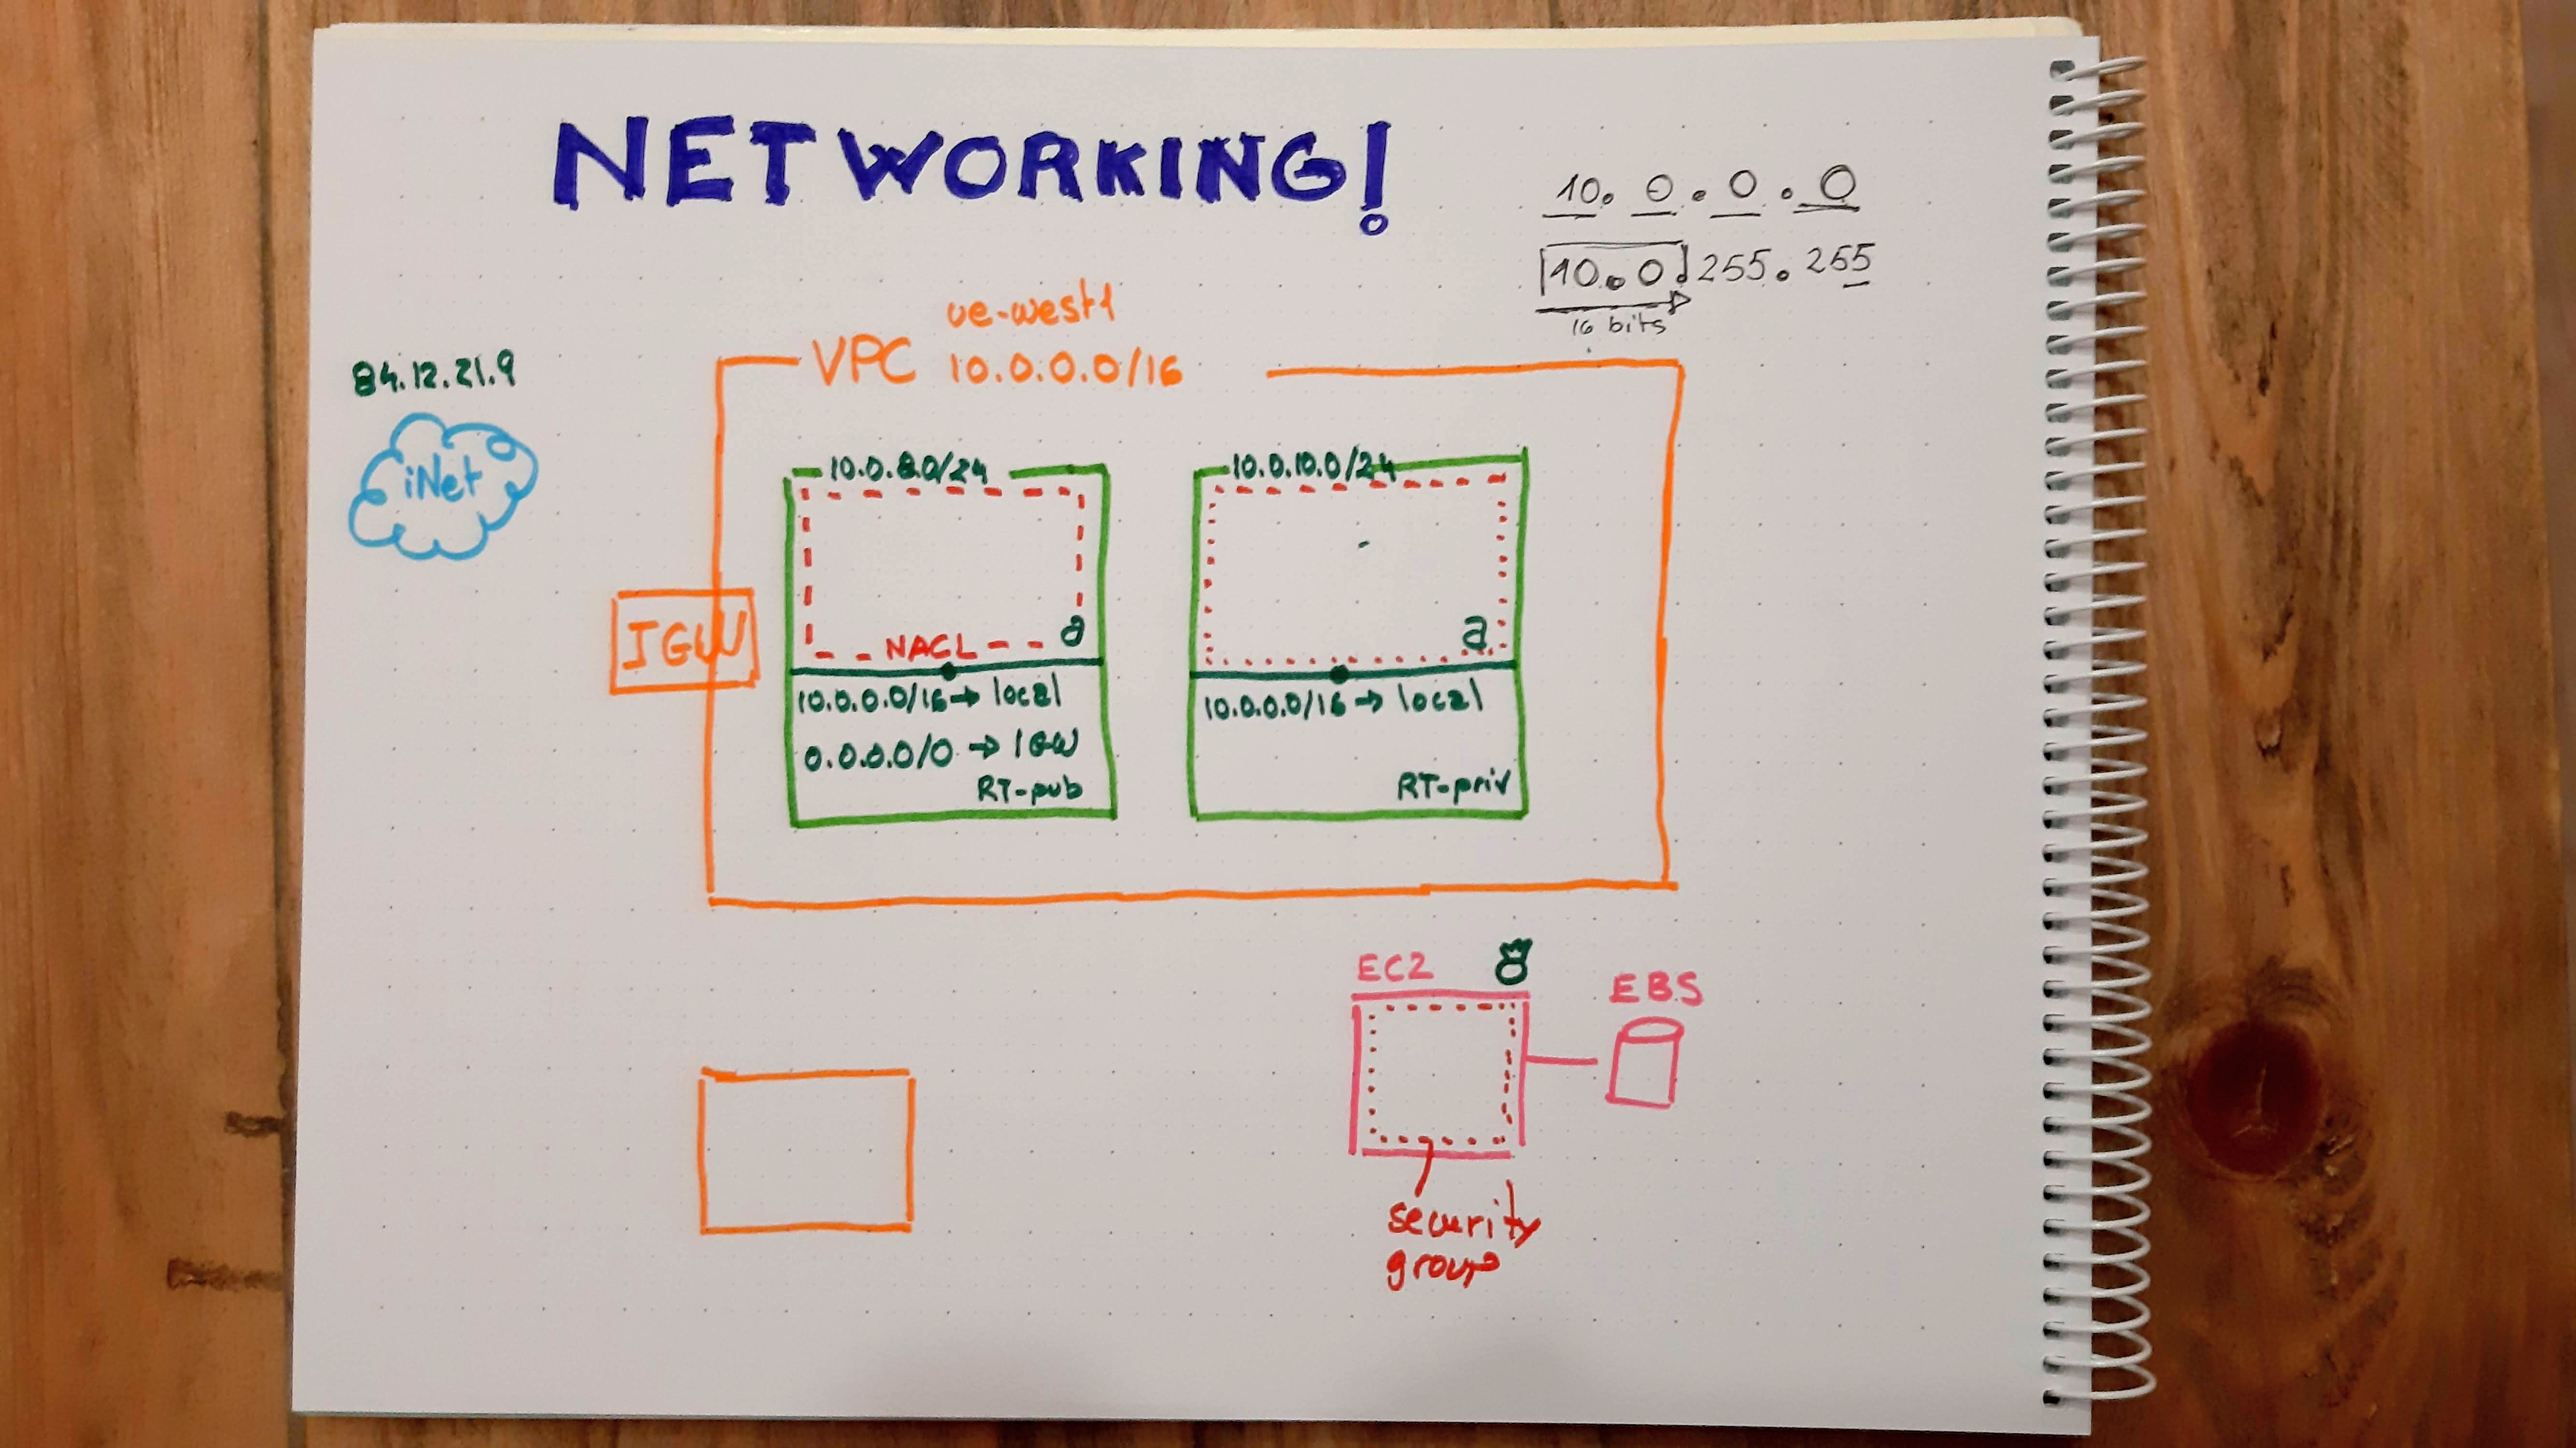 NETWORKING!
10.0.0.0
10.0.255.255
16 bits
ue-west1
VPC 10.0.0.0/16
84.12.21.9
iNet
10.0.8.0/24
10.0.10.0/24
IGW
NACL
a
a
10.0.0.0/16→local
0.0.0.0/0→IGW
RT-pub
10.0.0.0/16→local
RT-priv
EC2
EBS
security
group